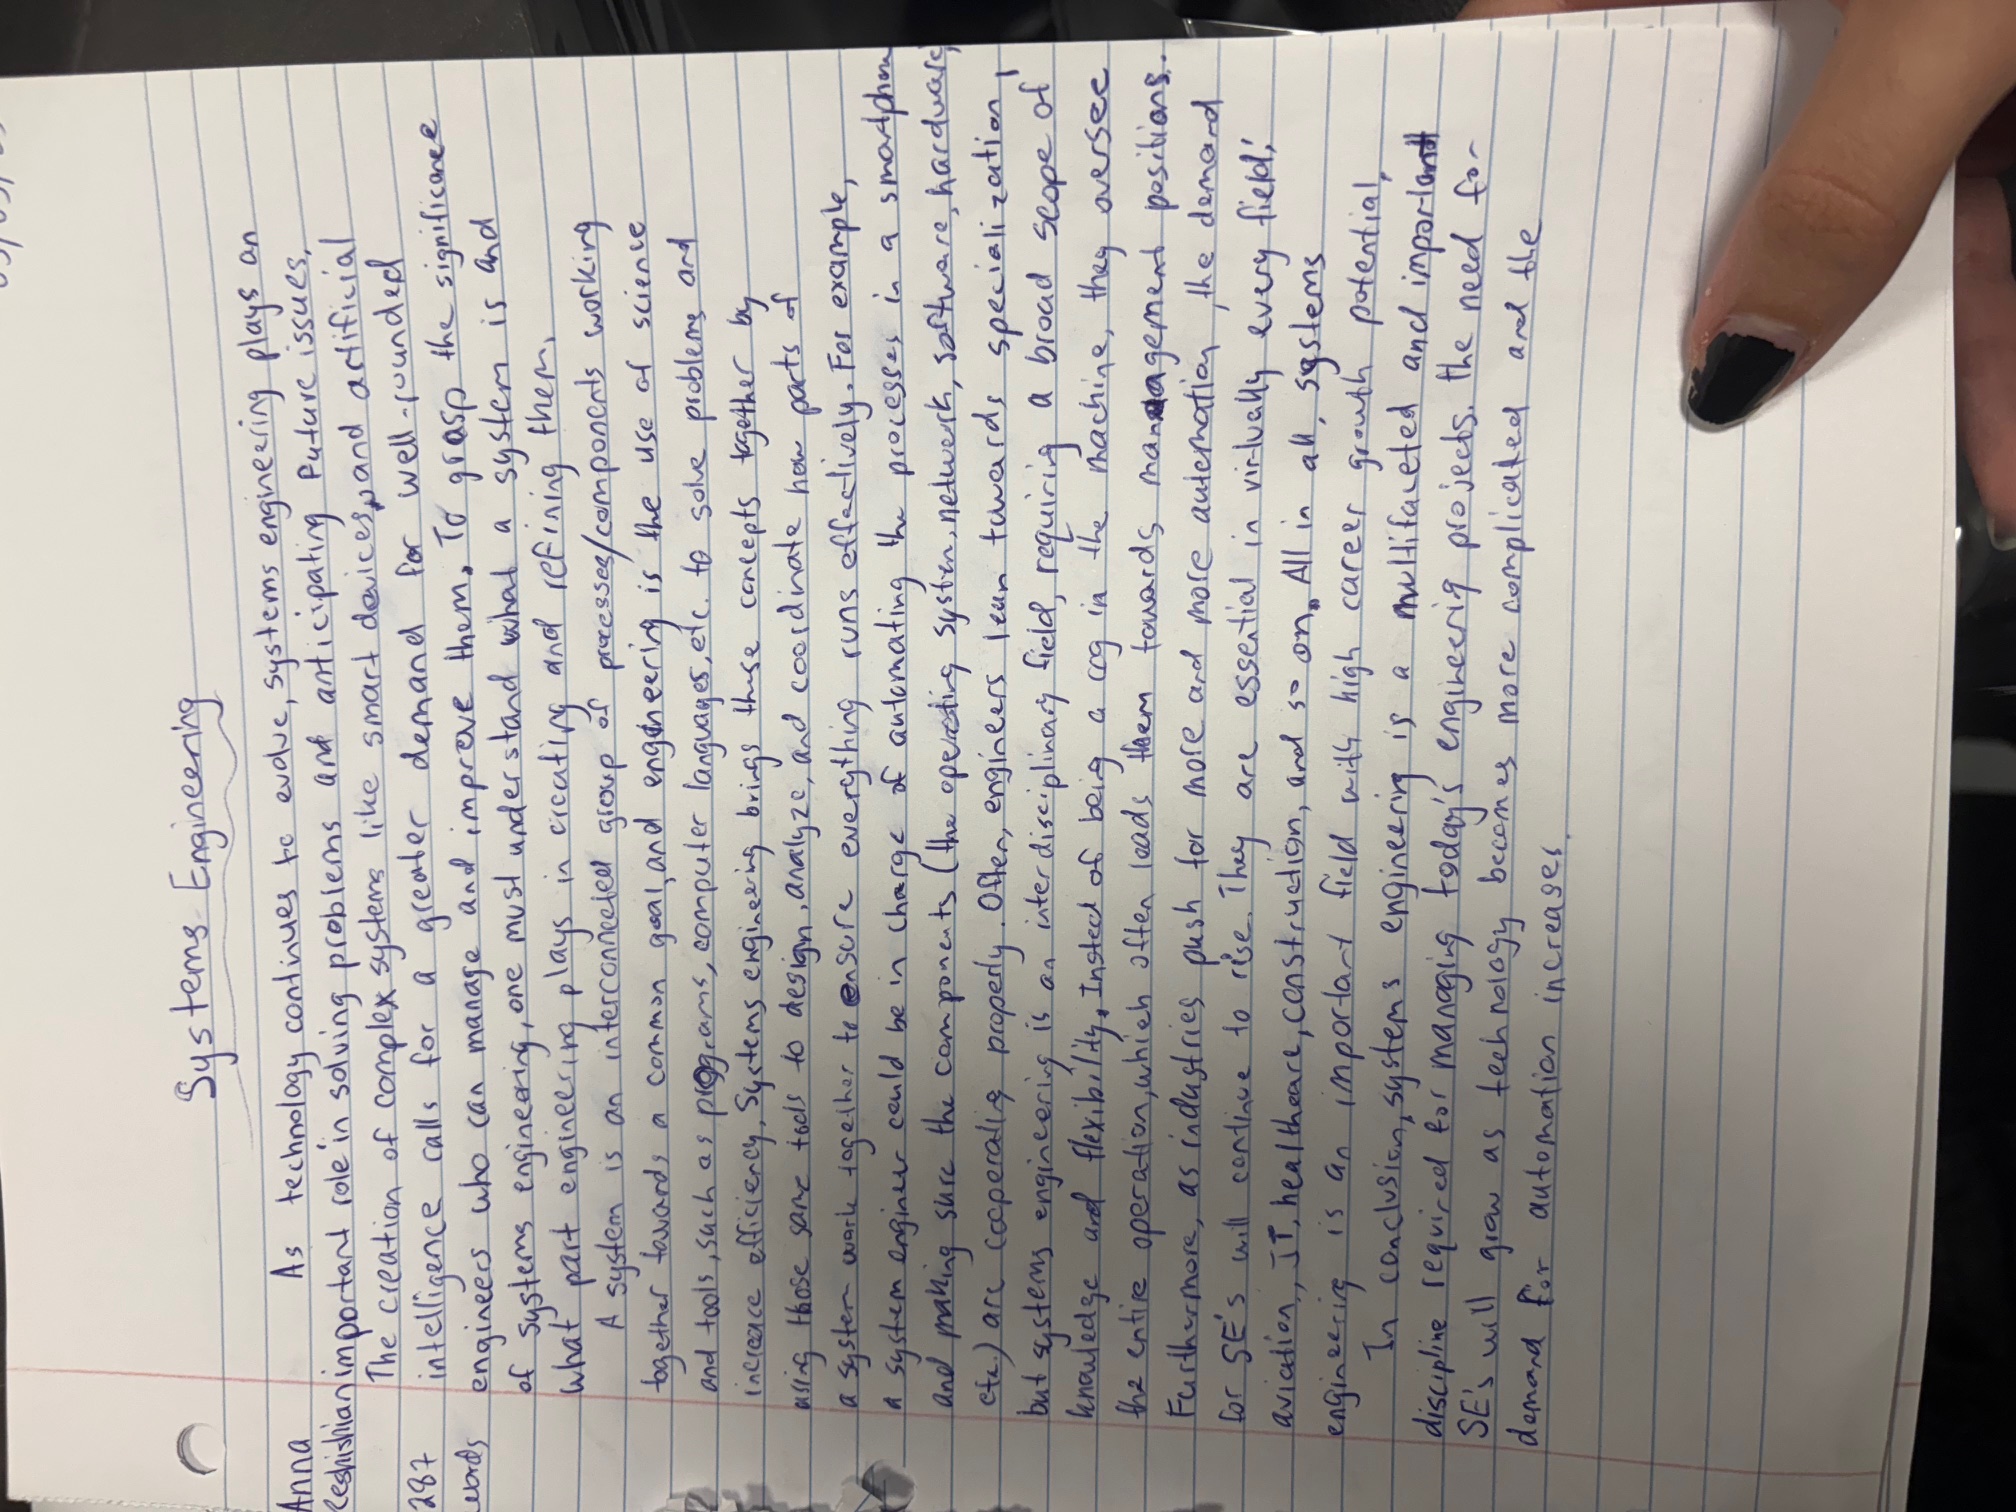 Systems Engineering
Anna As technology continues to evolve, systems engineering plays an
Keshishian important role in solving problems and anticipating future issues.
The creation of complex systems like smart devices, and artificial
287 intelligence calls for a greater demand for well-rounded
words engineers who can manage and improve them. To grasp the significance
of systems engineering, one must understand what a system is and
what part engineering plays in creating and refining them.
A system is an interconnected group of processes/components working
together towards a common goal, and engineering is the use of science
and tools, such as programs, computer languages, etc. to solve problems and
increase efficiency. Systems engineering brings these concepts together by
using those same tools to design, analyze, and coordinate how parts of
a system work together to ensure everything runs effectively. For example,
a system engineer could be in charge of automating the processes in a smartphone
and making sure the components (the operating system, network, software, hardware,
etc.) are cooperatig properly. Often, engineers lean towards specialization,
but systems engineering is an interdisciplinary field, requiring a broad scope of
knowledge and flexibility. Instead of being a cog in the machine, they oversee
the entire operation, which often leads them towards management positions.
Furthermore, as industries push for more and more automation, the demand
for SE's will continue to rise. They are essential in virtually every field;
aviation, IT, healthcare, construction, and so on. All in all, systems
engineering is an important field with high career growth potential.
In conclusion, systems engineering is a multifaceted and important
discipline required for managing today's engineerig projects. the need for
SE's will grow as technology becomes more complicated and the
demand for automation increases.